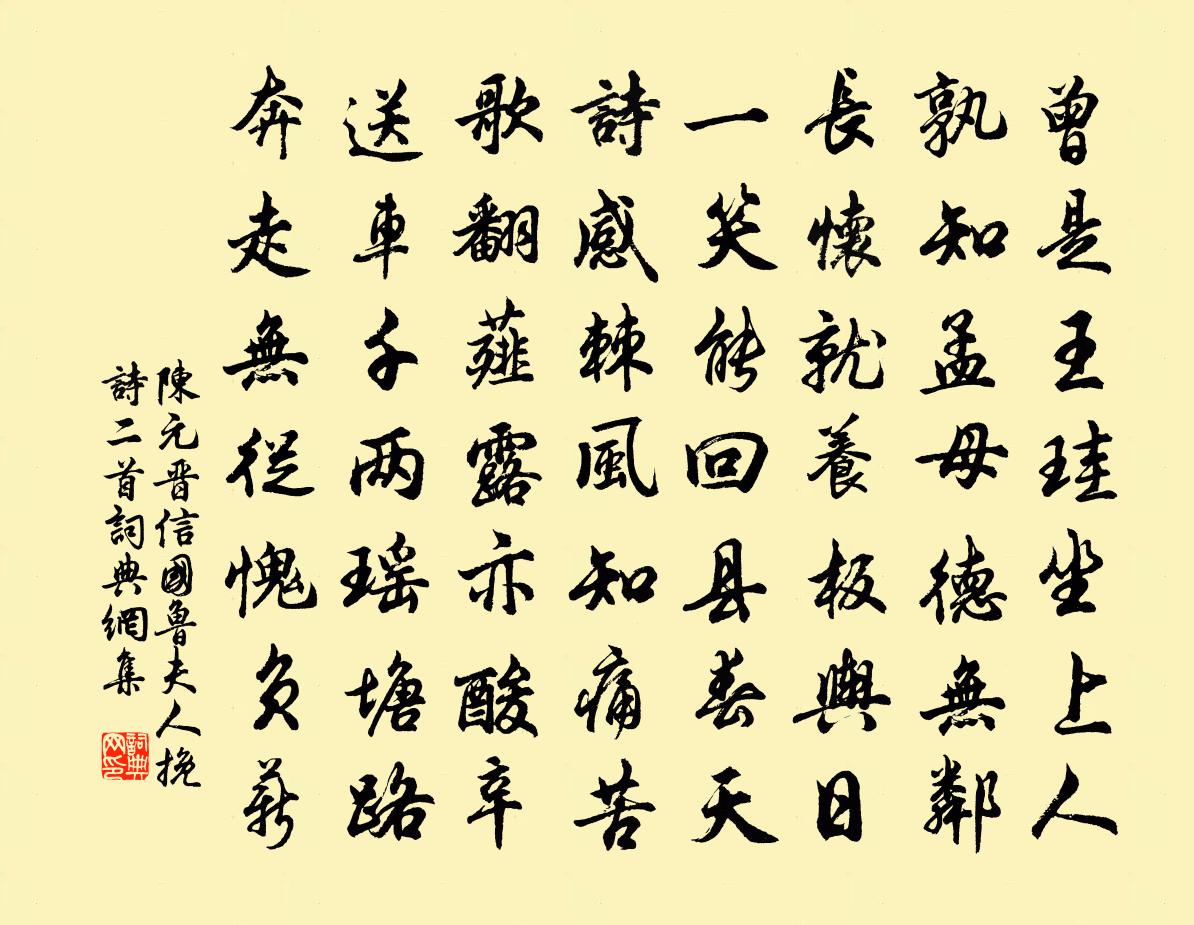 曾是王珪坐上人
孰知孟母德無鄰
長懷就養板輿日
一笑能回县春天
詩感棘風知痛苦
歌翻薤露亦酸辛
送車千两瑶塘路
奔走無從愧負薪
陳元晋信國魯夫人挽
詩二首詞典網集
詞典
网印